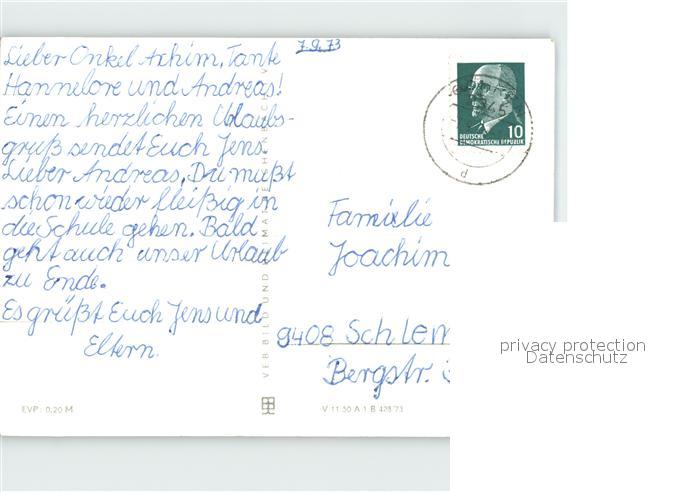 7.9.73
Lieber Onkel Achim, Tante
Hannelore und Andreas!
Einen herzlichen Urlaubs-
gruß sendet Euch Jens.
Lieber Andreas, Du mußt
schon wieder fleißig in
die Schule gehen. Bald
geht auch unser Urlaub
zu Ende.
Es grüßt Euch Jens und
Eltern.
EVP: 0,20 M
VEB BILD UND HEIMAT
10
DEUTSCHE
DEMOKRATISCHE REPUBLIK
d
Familie
Joachim
9408 Schlem
Bergstr.
V 11 50 A 1 B 428/73
privacy protection
Datenschutz